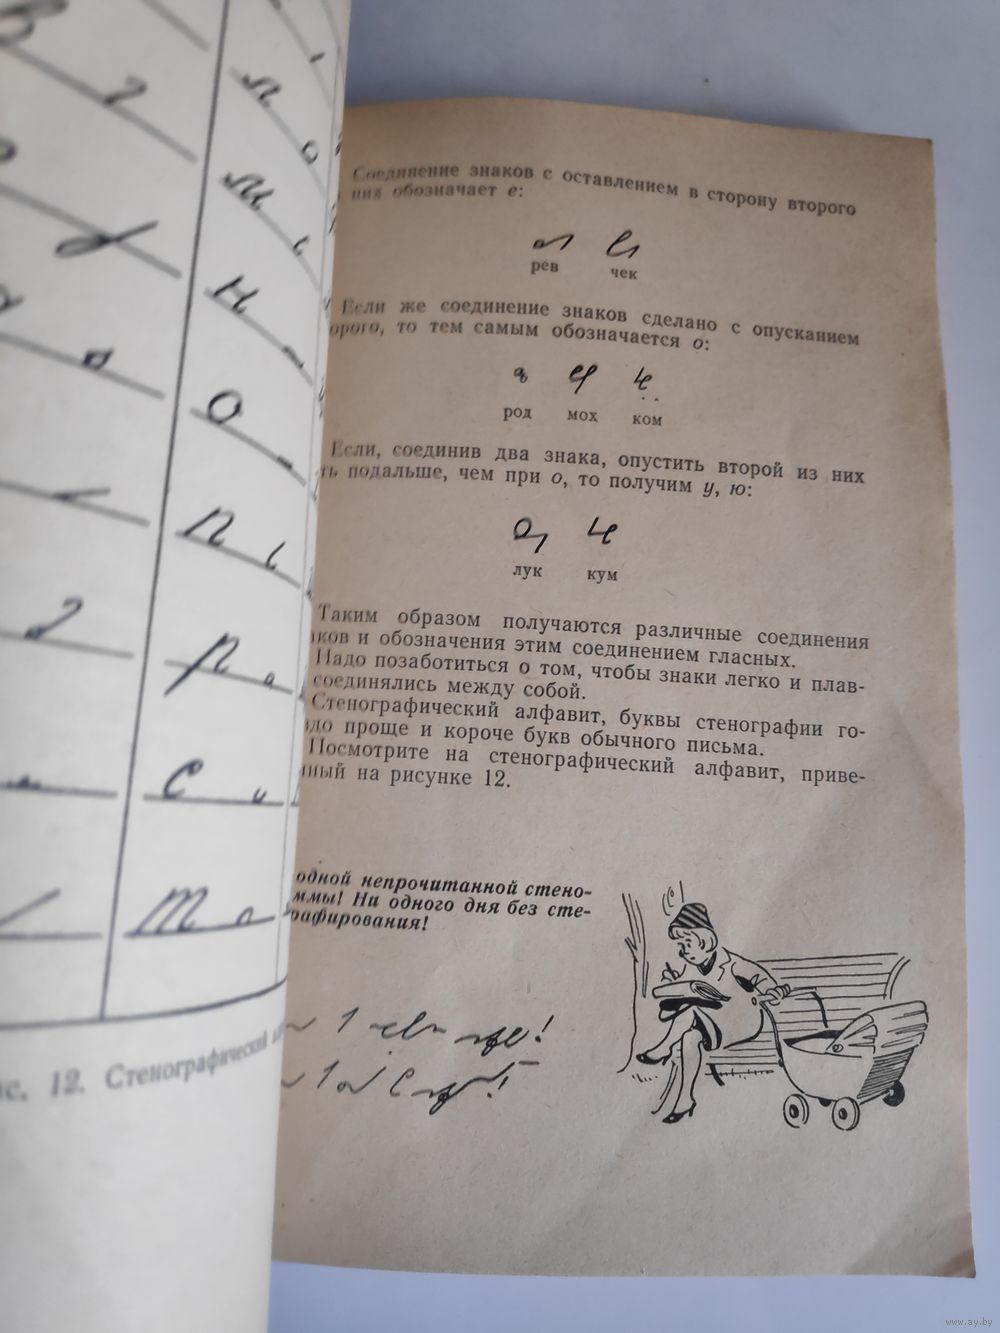 в
г
л
м
н
о
п
р
с
т
Рис. 12. Стенографический
Соединение знаков с оставлением в сторону второго
ния обозначает е:
рев чек
Если же соединение знаков сделано с опусканием
орого, то тем самым обозначается о:
род мох ком
Если, соединив два знака, опустить второй из них
ть подальше, чем при о, то получим у, ю:
лук кум
Таким образом получаются различные соединения
аков и обозначения этим соединением гласных.
Надо позаботиться о том, чтобы знаки легко и плав-
соединялись между собой.
Стенографический алфавит, буквы стенографии го-
здо проще и короче букв обычного письма.
Посмотрите на стенографический алфавит, приве-
нный на рисунке 12.
одной непрочитанной стено-
ммы! Ни одного дня без сте-
рафирования!
www.ay.by